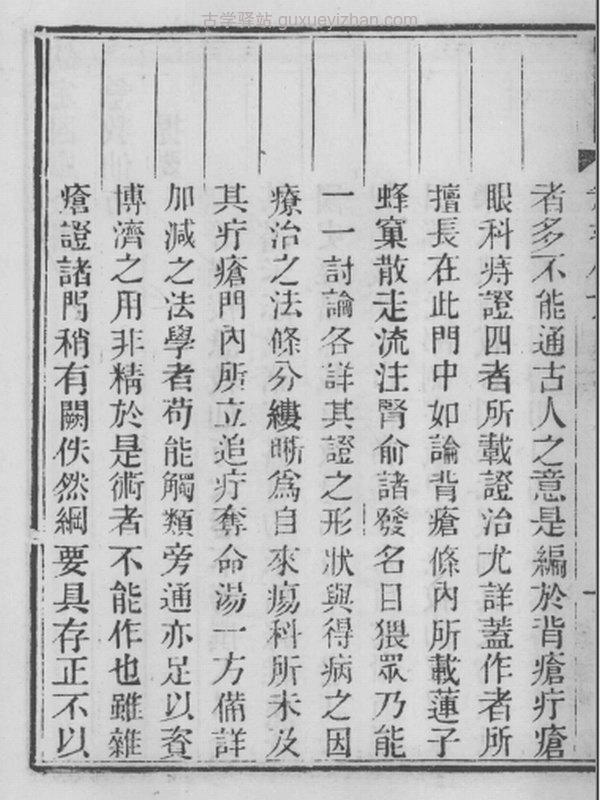 古学驿站 guxueyizhan.com
者多不能通古人之意是編於背瘡疔瘡
眼科痔證四者所載證治尤詳蓋作者所
擅長在此門中如論背瘡條內所載蓮子
蜂窠散走流注腎俞諸發名目猥眾乃能
一一討論各詳其證之形狀與得病之因
療治之法條分縷晰為自來瘍科所未及
其疔瘡門內所立追疔奪命湯一方備詳
加減之法學者苟能觸類旁通亦足以資
博濟之用非精於是術者不能作也雖雜
瘡證諸門稍有闕佚然綱要具存正不以